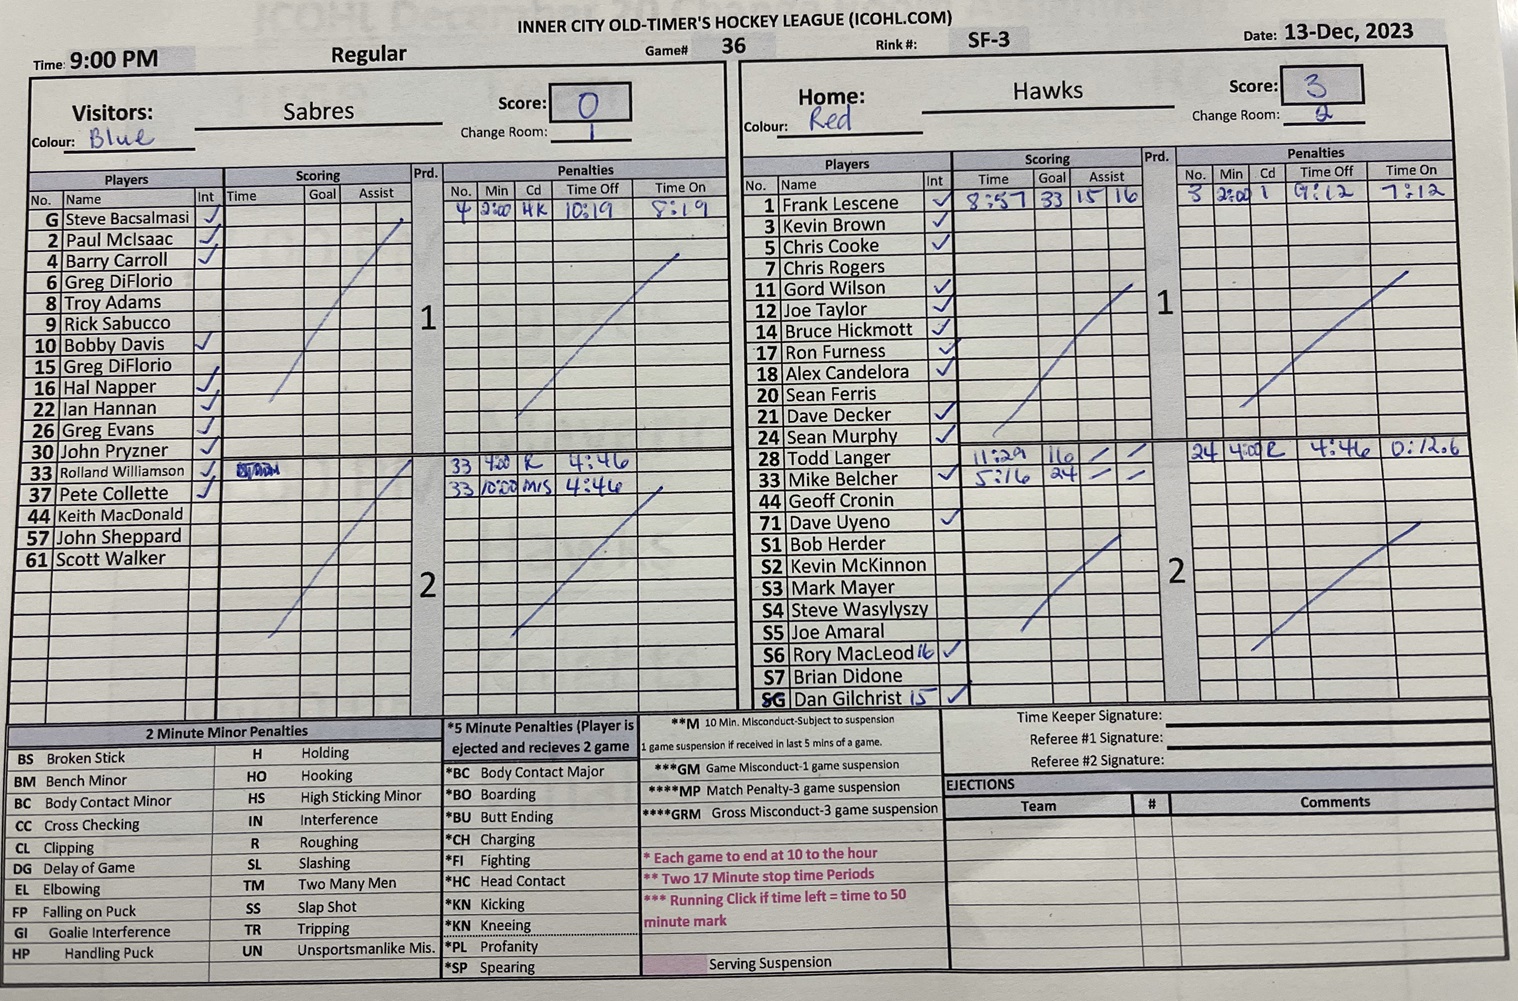 INNER CITY OLD-TIMER'S HOCKEY LEAGUE (ICOHL.COM)
Time: 9:00 PM Regular Game# 36 Rink #: SF-3 Date: 13-Dec, 2023
Visitors: Sabres Score: 0
Colour: Blue Change Room: 1
Players Scoring Prd. Penalties
No. Name Int Time Goal Assist No. Min Cd Time Off Time On
G Steve Bacsalmasi ✓ 4 2:00 HK 10:19 8:19
2 Paul McIsaac ✓
4 Barry Carroll ✓
6 Greg DiFlorio
8 Troy Adams
9 Rick Sabucco 1
10 Bobby Davis ✓
15 Greg DiFlorio
16 Hal Napper ✓
22 Ian Hannan ✓
26 Greg Evans ✓
30 John Pryzner ✓
33 Rolland Williamson ✓ 33 4:00 R 4:46
37 Pete Collette ✓ 33 10:00 MIS 4:46
44 Keith MacDonald
57 John Sheppard
61 Scott Walker 2
Home: Hawks Score: 3
Colour: Red Change Room: 2
Players Scoring Prd. Penalties
No. Name Int Time Goal Assist No. Min Cd Time Off Time On
1 Frank Lescene ✓ 8:57 33 15 16 3 2:00 9:12 7:12
3 Kevin Brown ✓
5 Chris Cooke ✓
7 Chris Rogers
11 Gord Wilson ✓ 1
12 Joe Taylor ✓
14 Bruce Hickmott ✓
17 Ron Furness ✓
18 Alex Candelora ✓
20 Sean Ferris
21 Dave Decker ✓
24 Sean Murphy ✓
28 Todd Langer 11:29 16 – – 24 4:00 R 4:46 0:12.6
33 Mike Belcher ✓ 5:16 24 – –
44 Geoff Cronin
71 Dave Uyeno ✓
S1 Bob Herder
S2 Kevin McKinnon 2
S3 Mark Mayer
S4 Steve Wasylyszy
S5 Joe Amaral
S6 Rory MacLeod 16 ✓
S7 Brian Didone
SG Dan Gilchrist 15 ✓
2 Minute Minor Penalties
BS Broken Stick H Holding
BM Bench Minor HO Hooking
BC Body Contact Minor HS High Sticking Minor
CC Cross Checking IN Interference
CL Clipping R Roughing
DG Delay of Game SL Slashing
EL Elbowing TM Two Many Men
FP Falling on Puck SS Slap Shot
GI Goalie Interference TR Tripping
HP Handling Puck UN Unsportsmanlike Mis.
*5 Minute Penalties (Player is
ejected and recieves 2 game
*BC Body Contact Major
*BO Boarding
*BU Butt Ending
*CH Charging
*FI Fighting
*HC Head Contact
*KN Kicking
*KN Kneeing
*PL Profanity
*SP Spearing
**M 10 Min. Misconduct-Subject to suspension
1 game suspension if received in last 5 mins of a game.
***GM Game Misconduct-1 game suspension
****MP Match Penalty-3 game suspension
****GRM Gross Misconduct-3 game suspension
* Each game to end at 10 to the hour
** Two 17 Minute stop time Periods
*** Running Click if time left = time to 50
minute mark
Serving Suspension
Time Keeper Signature:
Referee #1 Signature:
Referee #2 Signature:
EJECTIONS
Team # Comments